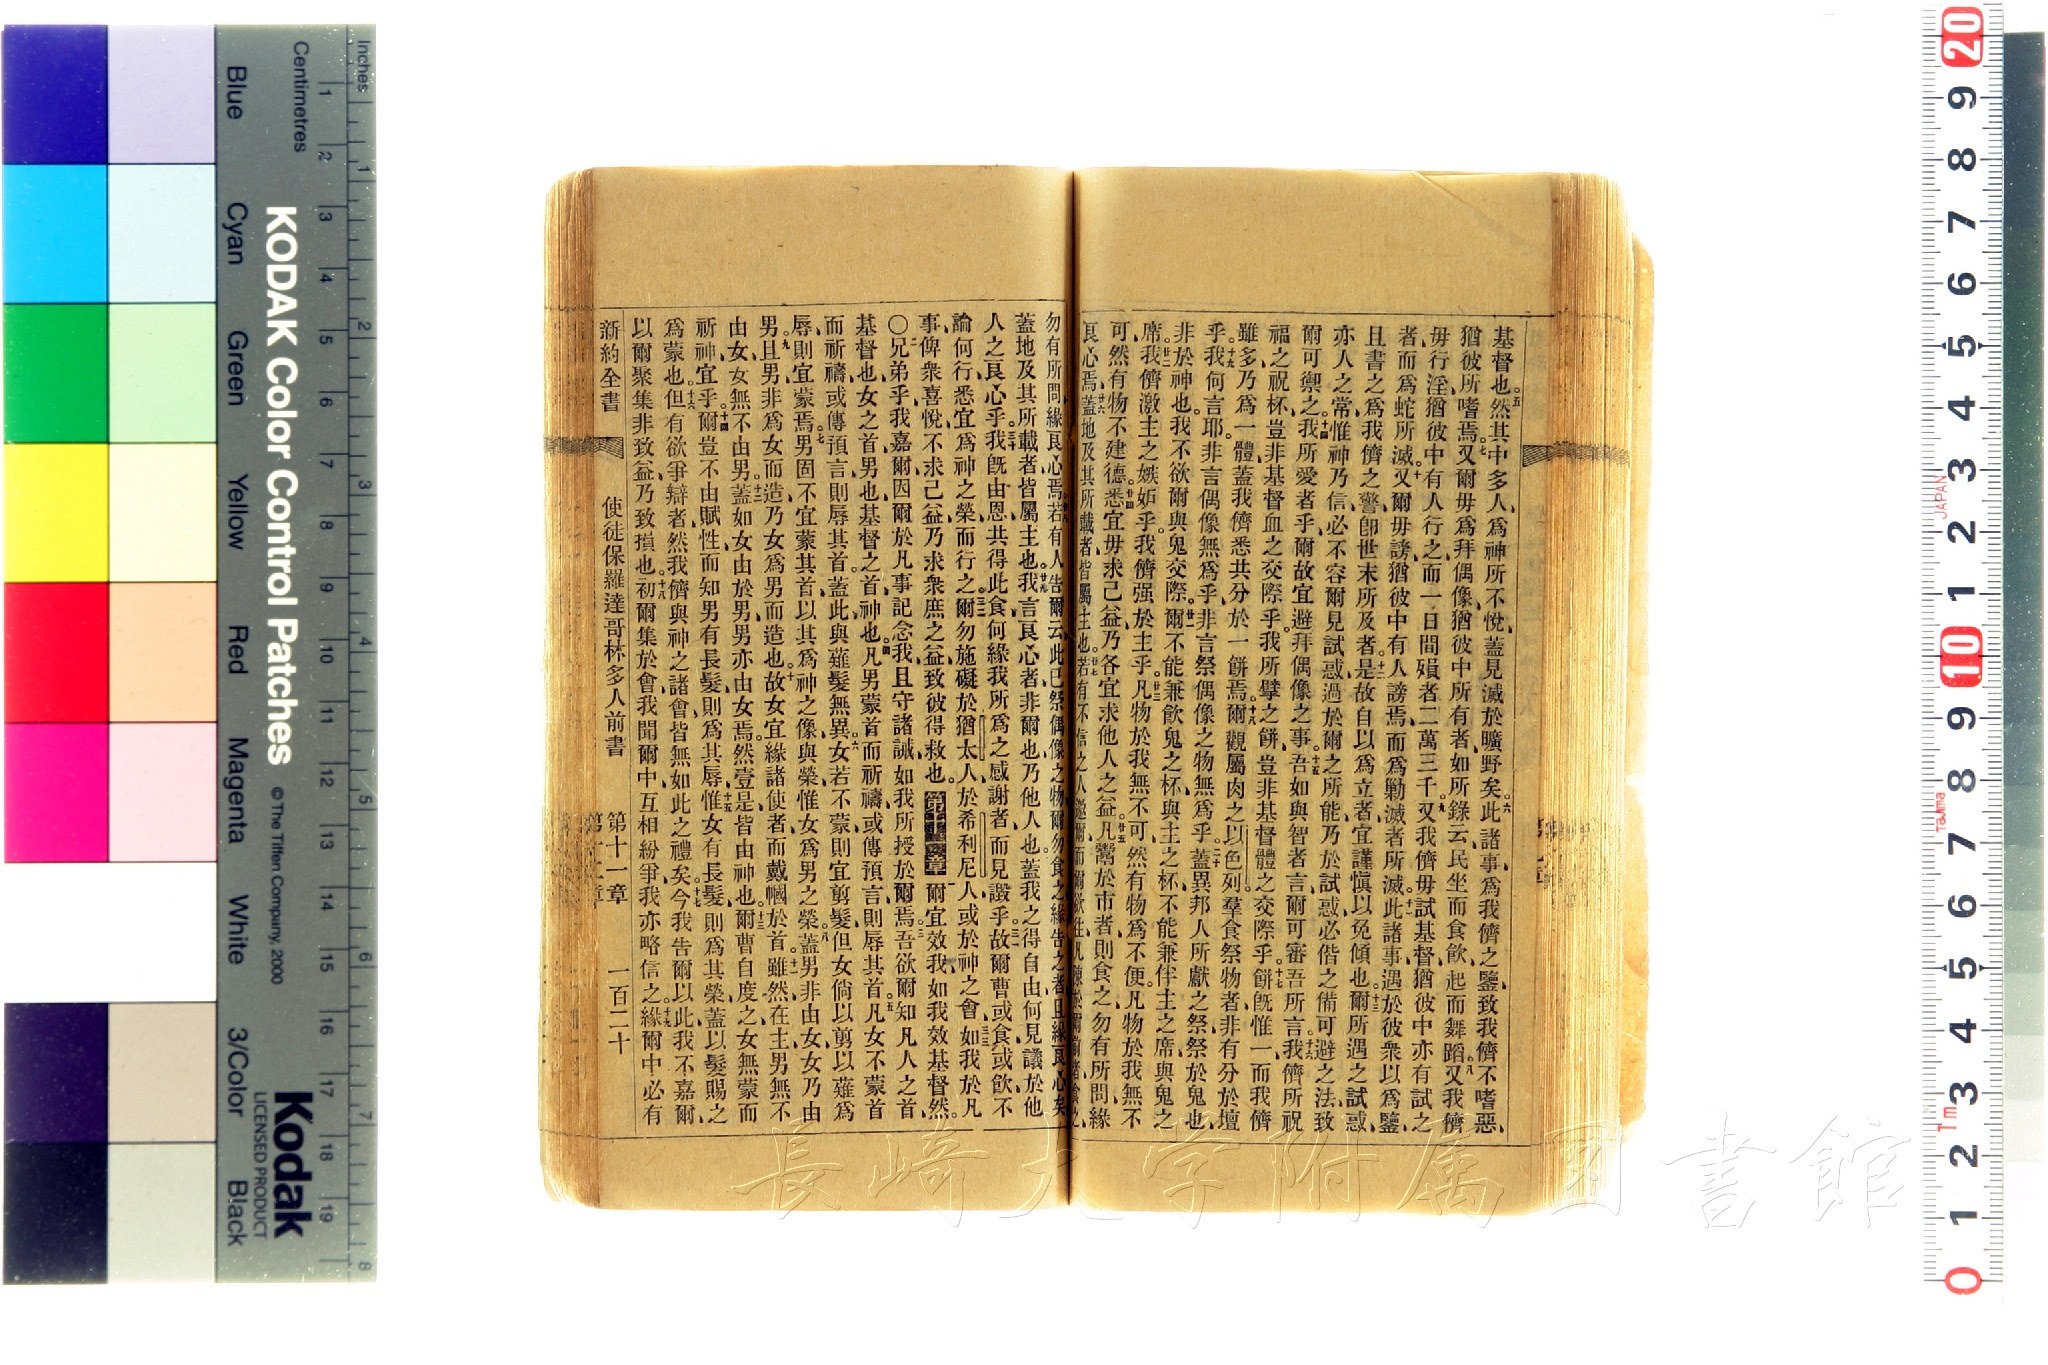 基督也。五然其中多人、爲神所不悅、蓋見滅於曠野矣。六此諸事爲我儕之鑒、致我儕不嗜惡、
猶彼所嗜焉。七又爾毋爲拜偶像、猶彼中所有者、如所錄云、民坐而食飲、起而舞蹈。八又我儕
毋行淫、猶彼中有人行之、而一日間殞者二萬三千。九又我儕毋試基督、猶彼中亦有試之
者、而爲蛇所滅。十又爾毋謗、猶彼中有人謗焉、而爲勦滅者所滅。十一此諸事遇於彼衆以爲鑒、
且書之、爲我儕之警、卽世末所及者。十二是故自以爲立者、宜謹愼以免傾也。十三爾所遇之試惑、
亦人之常、惟神乃信、必不容爾見試惑過於爾之所能、乃於試惑必偕之備可避之法、致
爾可禦之。十四我所愛者乎、爾故宜避拜偶像之事。十五吾如與智者言、爾可審吾所言。十六我儕所祝
福之祝杯、豈非基督血之交際乎。我所擘之餅、豈非基督體之交際乎。十七餅旣惟一、而我儕
雖多、乃爲一體、蓋我儕悉共分於一餅焉。十八爾觀屬肉之以色列羣、食祭物者、非有分於壇
乎。十九我何言耶、非言偶像無爲乎、非言祭偶像之物無爲乎。二十蓋異邦人所獻之祭、祭於鬼也、
非於神也、我不欲爾與鬼交際。廿一爾不能兼飲鬼之杯、與主之杯、不能兼伴主之席、與鬼之
席。廿二我儕激主之嫉妬乎。我儕强於主乎。廿三凡物於我無不可、然有物爲不便、凡物於我無不
可、然有物不建德。廿四悉宜毋求己益、乃各宜求他人之益。廿五凡鬻於市者則食之、勿有所問、緣
良心焉。廿六蓋地及其所載者皆屬主也。廿七若有不信之人邀爾而爾欲往、凡陳於爾前者食之、
勿有所問、緣良心焉。若有人告爾云、此已祭偶像之物、爾勿食之、緣告之者、且緣良心矣、
蓋地及其所載者皆屬主也。廿九我言良心者、非爾也、乃他人也、蓋我之得自由、何見議於他
人之良心乎。三十我旣由恩共得此食、何緣我所爲之感謝者而見譭乎。三一故爾曹或食、或飲、不
論何行、悉宜爲神之榮而行之。三二爾勿施礙於猶太人、於希利尼人、或於神之會。三三如我於凡
事俾衆喜悅、不求己益、乃求衆庶之益、致彼得救也。第十一章 一爾宜效我、如我效基督然。
〇二兄弟乎、我嘉爾、因爾於凡事記念我、且守諸誡、如我所授於爾焉。三吾欲爾知凡人之首、
基督也、女之首、男也、基督之首、神也。四凡男蒙首而祈禱、或傳預言、則辱其首。五凡女不蒙首
而祈禱、或傳預言、則辱其首、蓋此與薙髮無異。六女若不蒙、則宜剪髮、但女倘以剪以薙爲
辱、則宜蒙焉。七男固不宜蒙其首、以其爲神之像與榮、惟女爲男之榮。八蓋男非由女、女乃由
男。九且男非爲女而造、乃女爲男而造也。十故女宜緣諸使者而戴幗於首。十一雖然、在主男無不
由女、女無不由男。十二蓋如女由於男、男亦由女焉、然壹是皆由神也。十三爾曹自度之、女無蒙而
祈神、宜乎。十四爾豈不由賦性而知男有長髮、則爲其辱。十五惟女有長髮、則爲其榮、蓋以髮賜之
爲蒙也。十六但有欲爭辯者、然我儕與神之諸會皆無如此之禮矣。十七今我告爾以此、我不嘉爾、
以爾聚集、非致益、乃致損也。十八初爾集於會、我聞爾中互相紛爭、我亦略信之。十九緣爾中必有
新約全書 使徒保羅達哥林多人前書 第十一章 一百二十
長崎大学附属図書館
Inches
Centimetres
1 2 3 4 5 6 7 8 9 10 11 12 13 14 15 16 17 18 19
1 2 3 4 5 6 7 8
KODAK Color Control Patches
© The Tiffen Company, 2000
Kodak
LICENSED PRODUCT
Blue
Cyan
Green
Yellow
Red
Magenta
White
3/Color
Black
20 9 8 7 6 5 4 3 2 1 10 9 8 7 6 5 4 3 2 1 0
JAPAN
Tajima
Tm